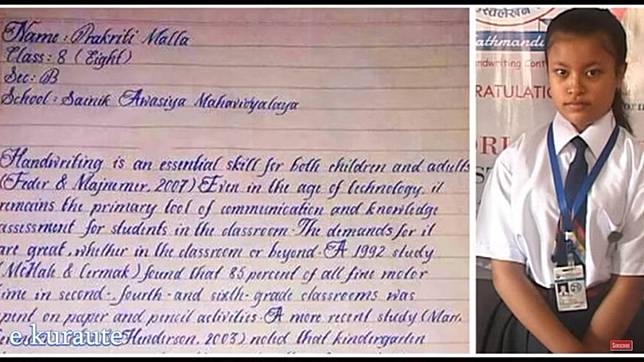 Name : Prakriti Malla
Class : 8 (Eight)
Sec : B
School : Sainik Awasiya Mahavidyalaya
Handwriting is an essential skill for both children and adults
(Feder & Majnemer, 2007) Even in the age of technology, it
remains the primary tool of communication and knowledge
assessment for students in the classroom. The demands for it
are great, whether in the classroom or beyond. A 1992 study
(McHale & Cermak) found that 85 percent of all fine motor
time in second-, fourth- and sixth- grade classrooms was
spent on paper and pencil activities. A more recent study (Marr,
Henderson, 2003) noted that kindergarten
e.kuraute
athmand
ndwriting Cont
RATULATI
SUBSCRIBE